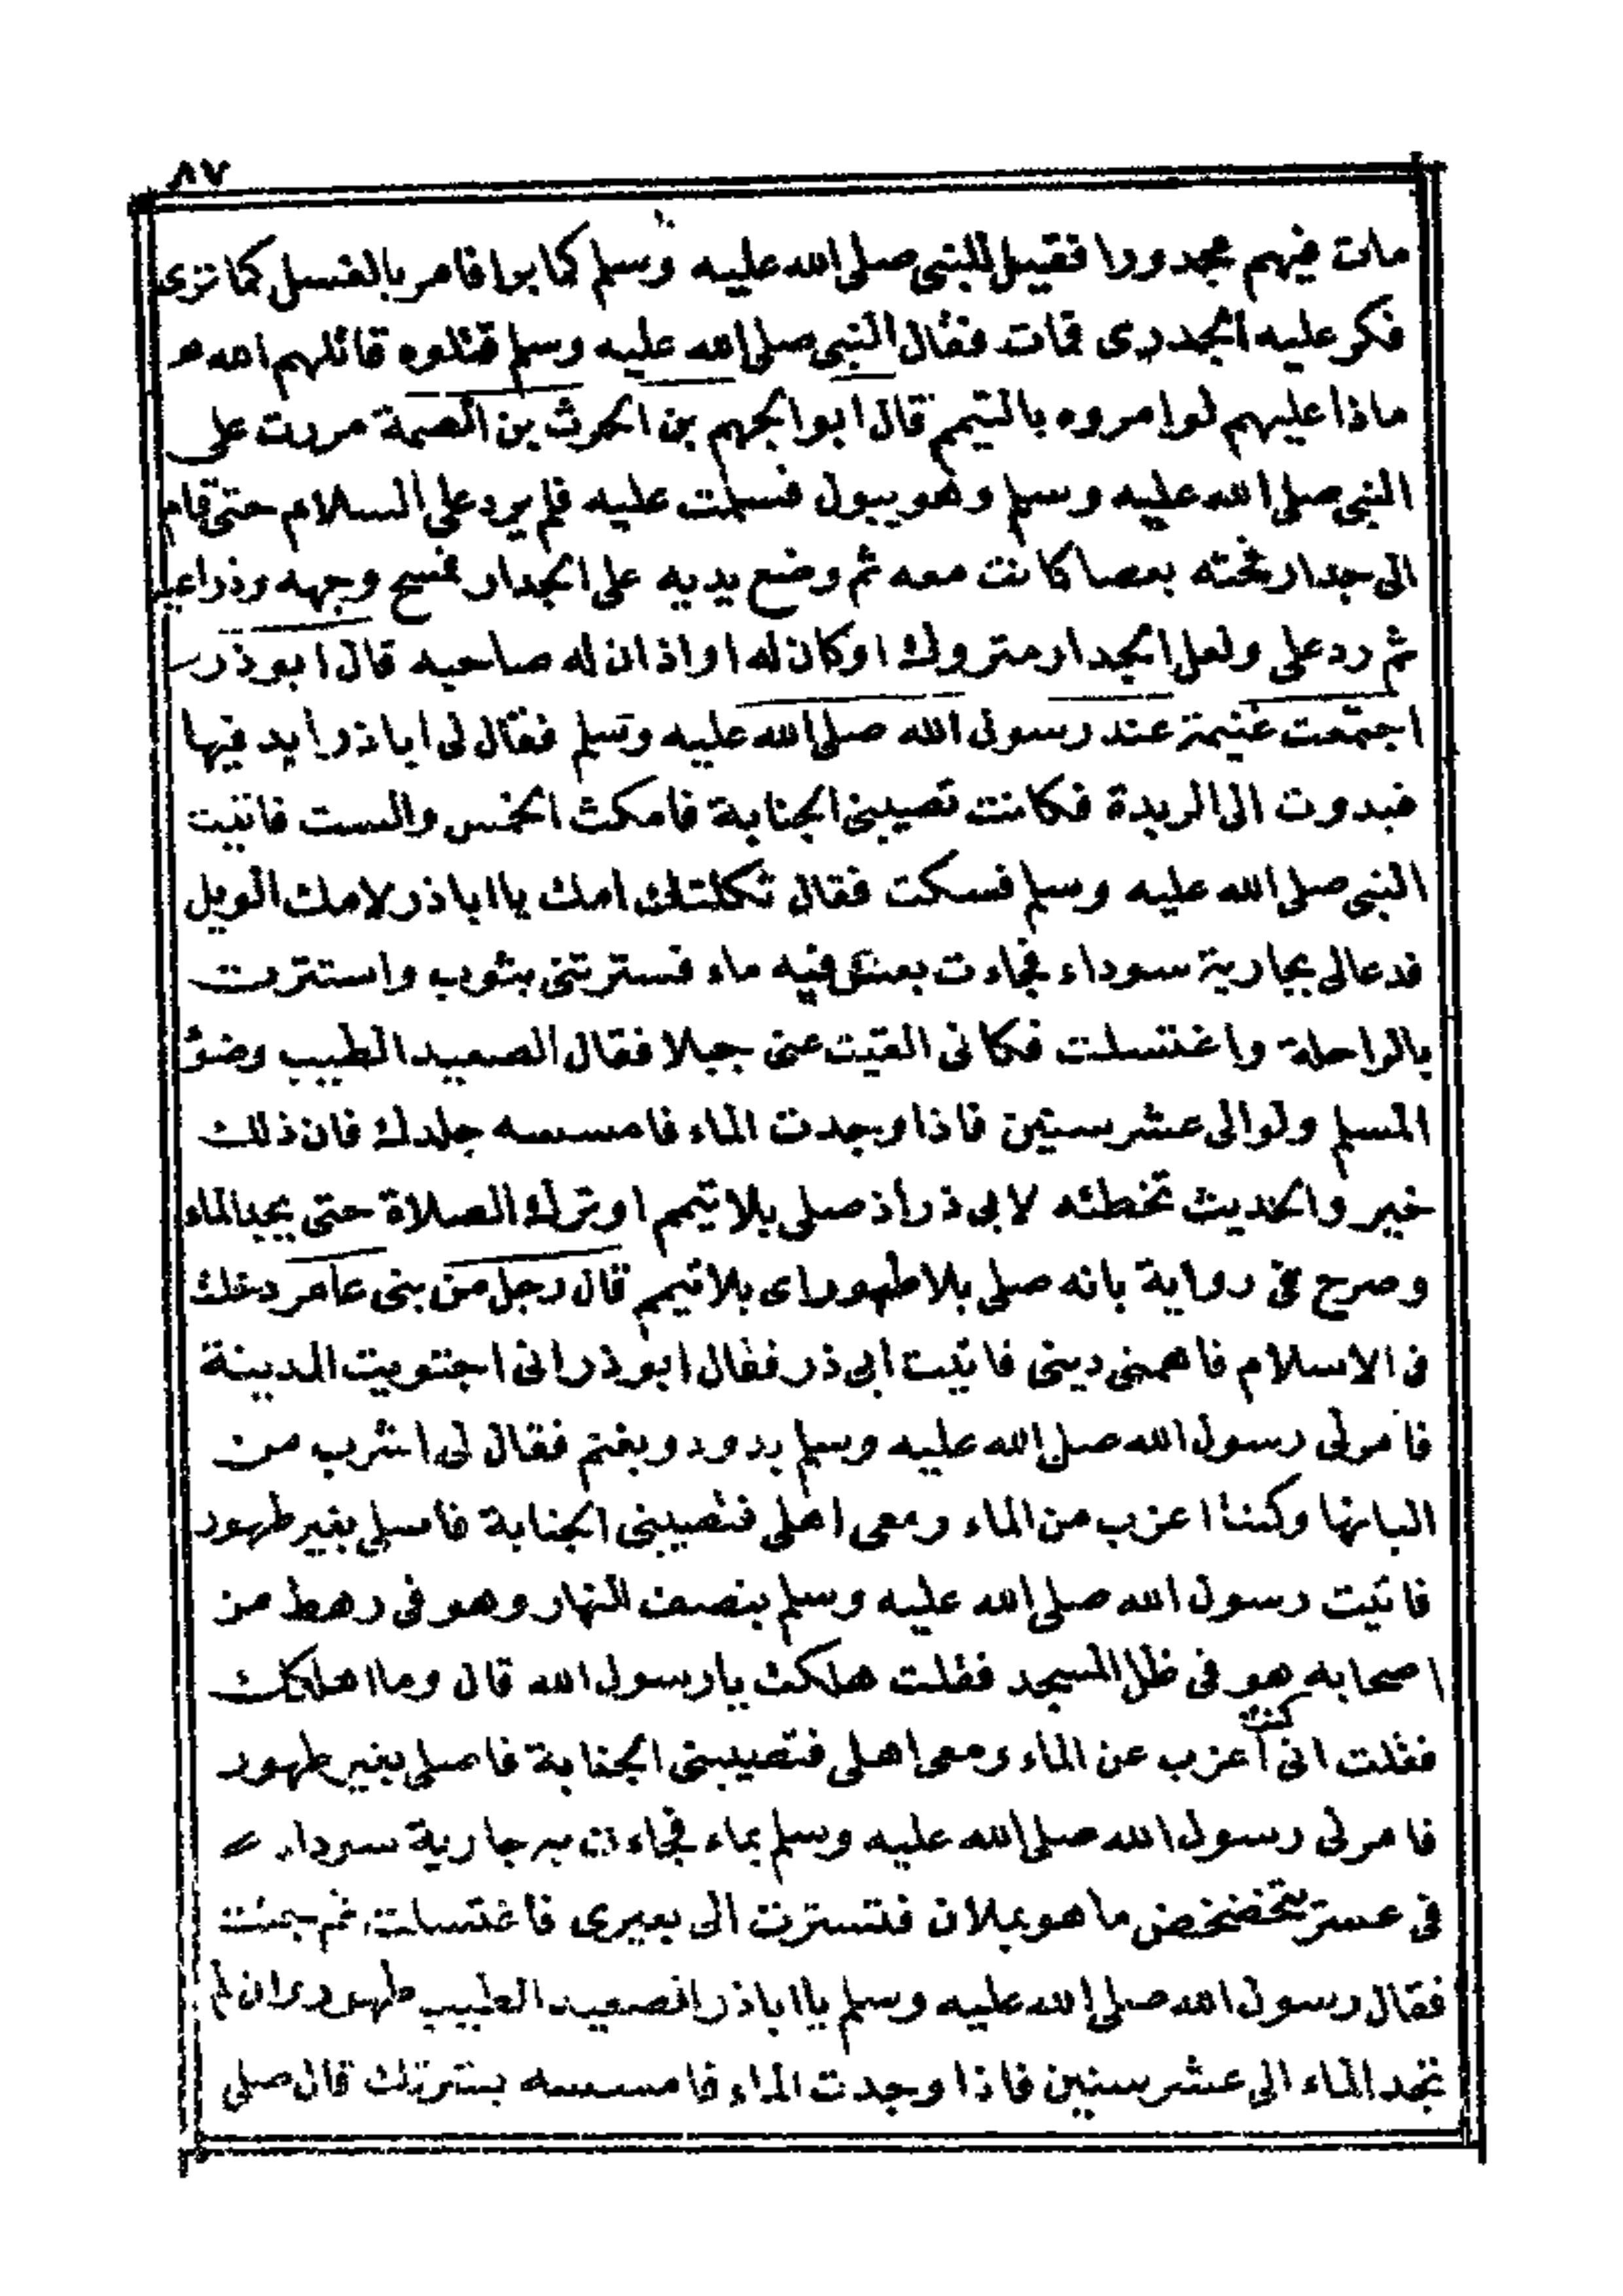 ٨٧
مات فيهم مجدورا فقيل للنبي صلى الله عليه وسلم كما بوا فامر بالغسل كما ترى
فكر عليه الجدرى فمات فقال النبي صلى الله عليه وسلم قتلوه قاتلهم الله
ماذا عليهم لو امروه بالتيمم قال ابو الجهم بن الحرث بن الصمة مررت على
النبي صلى الله عليه وسلم وهو يبول فسلمت عليه فلم يرد على السلام حتى قام
الى جدار فحته بعصا كانت معه ثم وضع يديه على الجدار فمسح وجهه وذراعيه
ثم رد على ولعل الجدار متروك او كان له او اذن له صاحبه قال ابو ذر
اجتمعت غنيمة عند رسول الله صلى الله عليه وسلم فقال لى اباذر ابد فيها
فبدوت الى الربدة فكانت تصيبنى الجنابة فامكث الخمس والست فاتيت
النبي صلى الله عليه وسلم فسكت فقال ثكلتك امك يا اباذر لامك الويل
فدعا لى بجارية سوداء فجاءت بعس فيه ماء فسترتنى بثوب واستترت
بالراحلة واغتسلت فكانى القيت عنى جبلا فقال الصعيد الطيب وضؤ
المسلم ولو الى عشر سنين فاذا وجدت الماء فامسسه جلدك فان ذلك
خير والحديث تخطئه لابى ذر اذ صلى بلا تيمم او ترك الصلاة حتى يجد الماء
وصرح فى رواية بانه صلى بلا طهور اى بلا تيمم قال رجل من بنى عامر دخلت
فى الاسلام فاهمنى دينى فاتيت ابى ذر فقال ابو ذر انى اجتويت المدينة
فامر لى رسول الله صلى الله عليه وسلم بدود وبغنم فقال لى اشرب من
البانها وكنت اعزب من الماء ومعى اهلى فتصيبنى الجنابة فاصلى بغير طهور
فاتيت رسول الله صلى الله عليه وسلم بنصف النهار وهو فى رهط من
اصحابه هو فى ظل المسجد فقلت هلكت يا رسول الله قال وما اهلكك
فقلت انى كنت اعزب عن الماء ومعى اهلى فتصيبنى الجنابة فاصلى بغير طهور
فامر لى رسول الله صلى الله عليه وسلم بماء فجاءت به جارية سوداء
فى عس يتخضخض ما هو بملان فتسترت الى بعيرى فاغتسلت ثم جئت
فقال رسول الله صلى الله عليه وسلم يا اباذر الصعيد الطيب طهور وان لم
تجد الماء الى عشر سنين فاذا وجدت الماء فامسسه بشرتك قال صلى